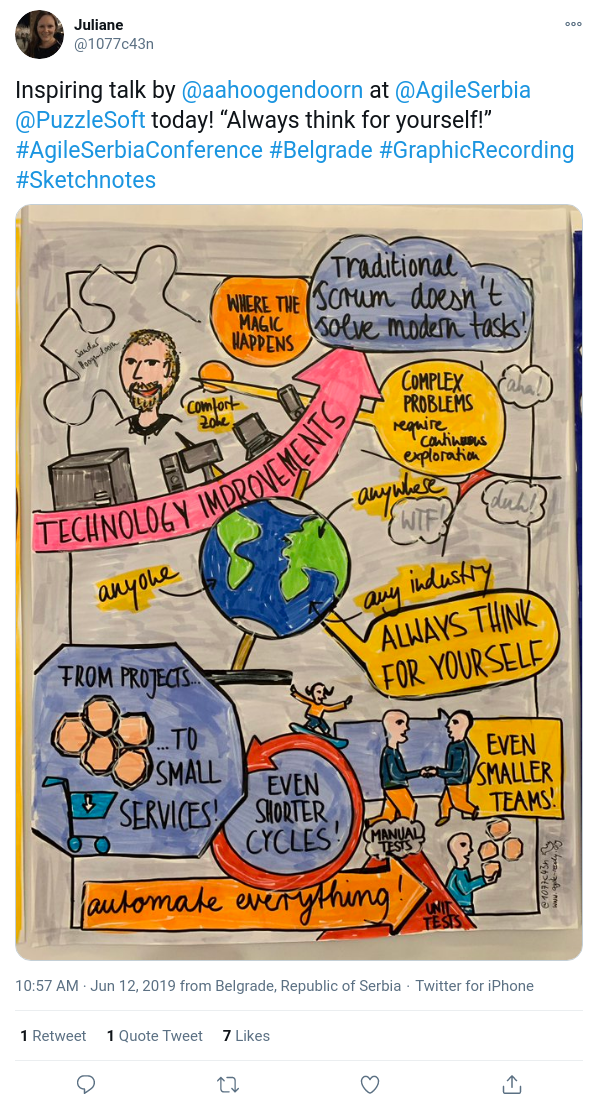 Juliane
@1077c43n
Inspiring talk by @aahoogendoorn at @AgileSerbia
@PuzzleSoft today! “Always think for yourself!”
#AgileSerbiaConference #Belgrade #GraphicRecording
#Sketchnotes
Traditional
Scrum doesn't
solve modern tasks!
WHERE THE
MAGIC
HAPPENS
Sander
Hoogendoorn
comfort-
zone
COMPLEX
PROBLEMS
require
continuous
exploration
aha!
TECHNOLOGY IMPROVEMENTS
anywhere
WTF!
duh!
anyone
any industry
ALWAYS THINK
FOR YOURSELF
FROM PROJECTS...
...TO
SMALL
SERVICES!
EVEN
SHORTER
CYCLES!
EVEN
SMALLER
TEAMS!
MANUAL
TESTS
UNIT
TESTS
automate everything!
@1077c43n
10:57 AM · Jun 12, 2019 from Belgrade, Republic of Serbia · Twitter for iPhone
1 Retweet 1 Quote Tweet 7 Likes